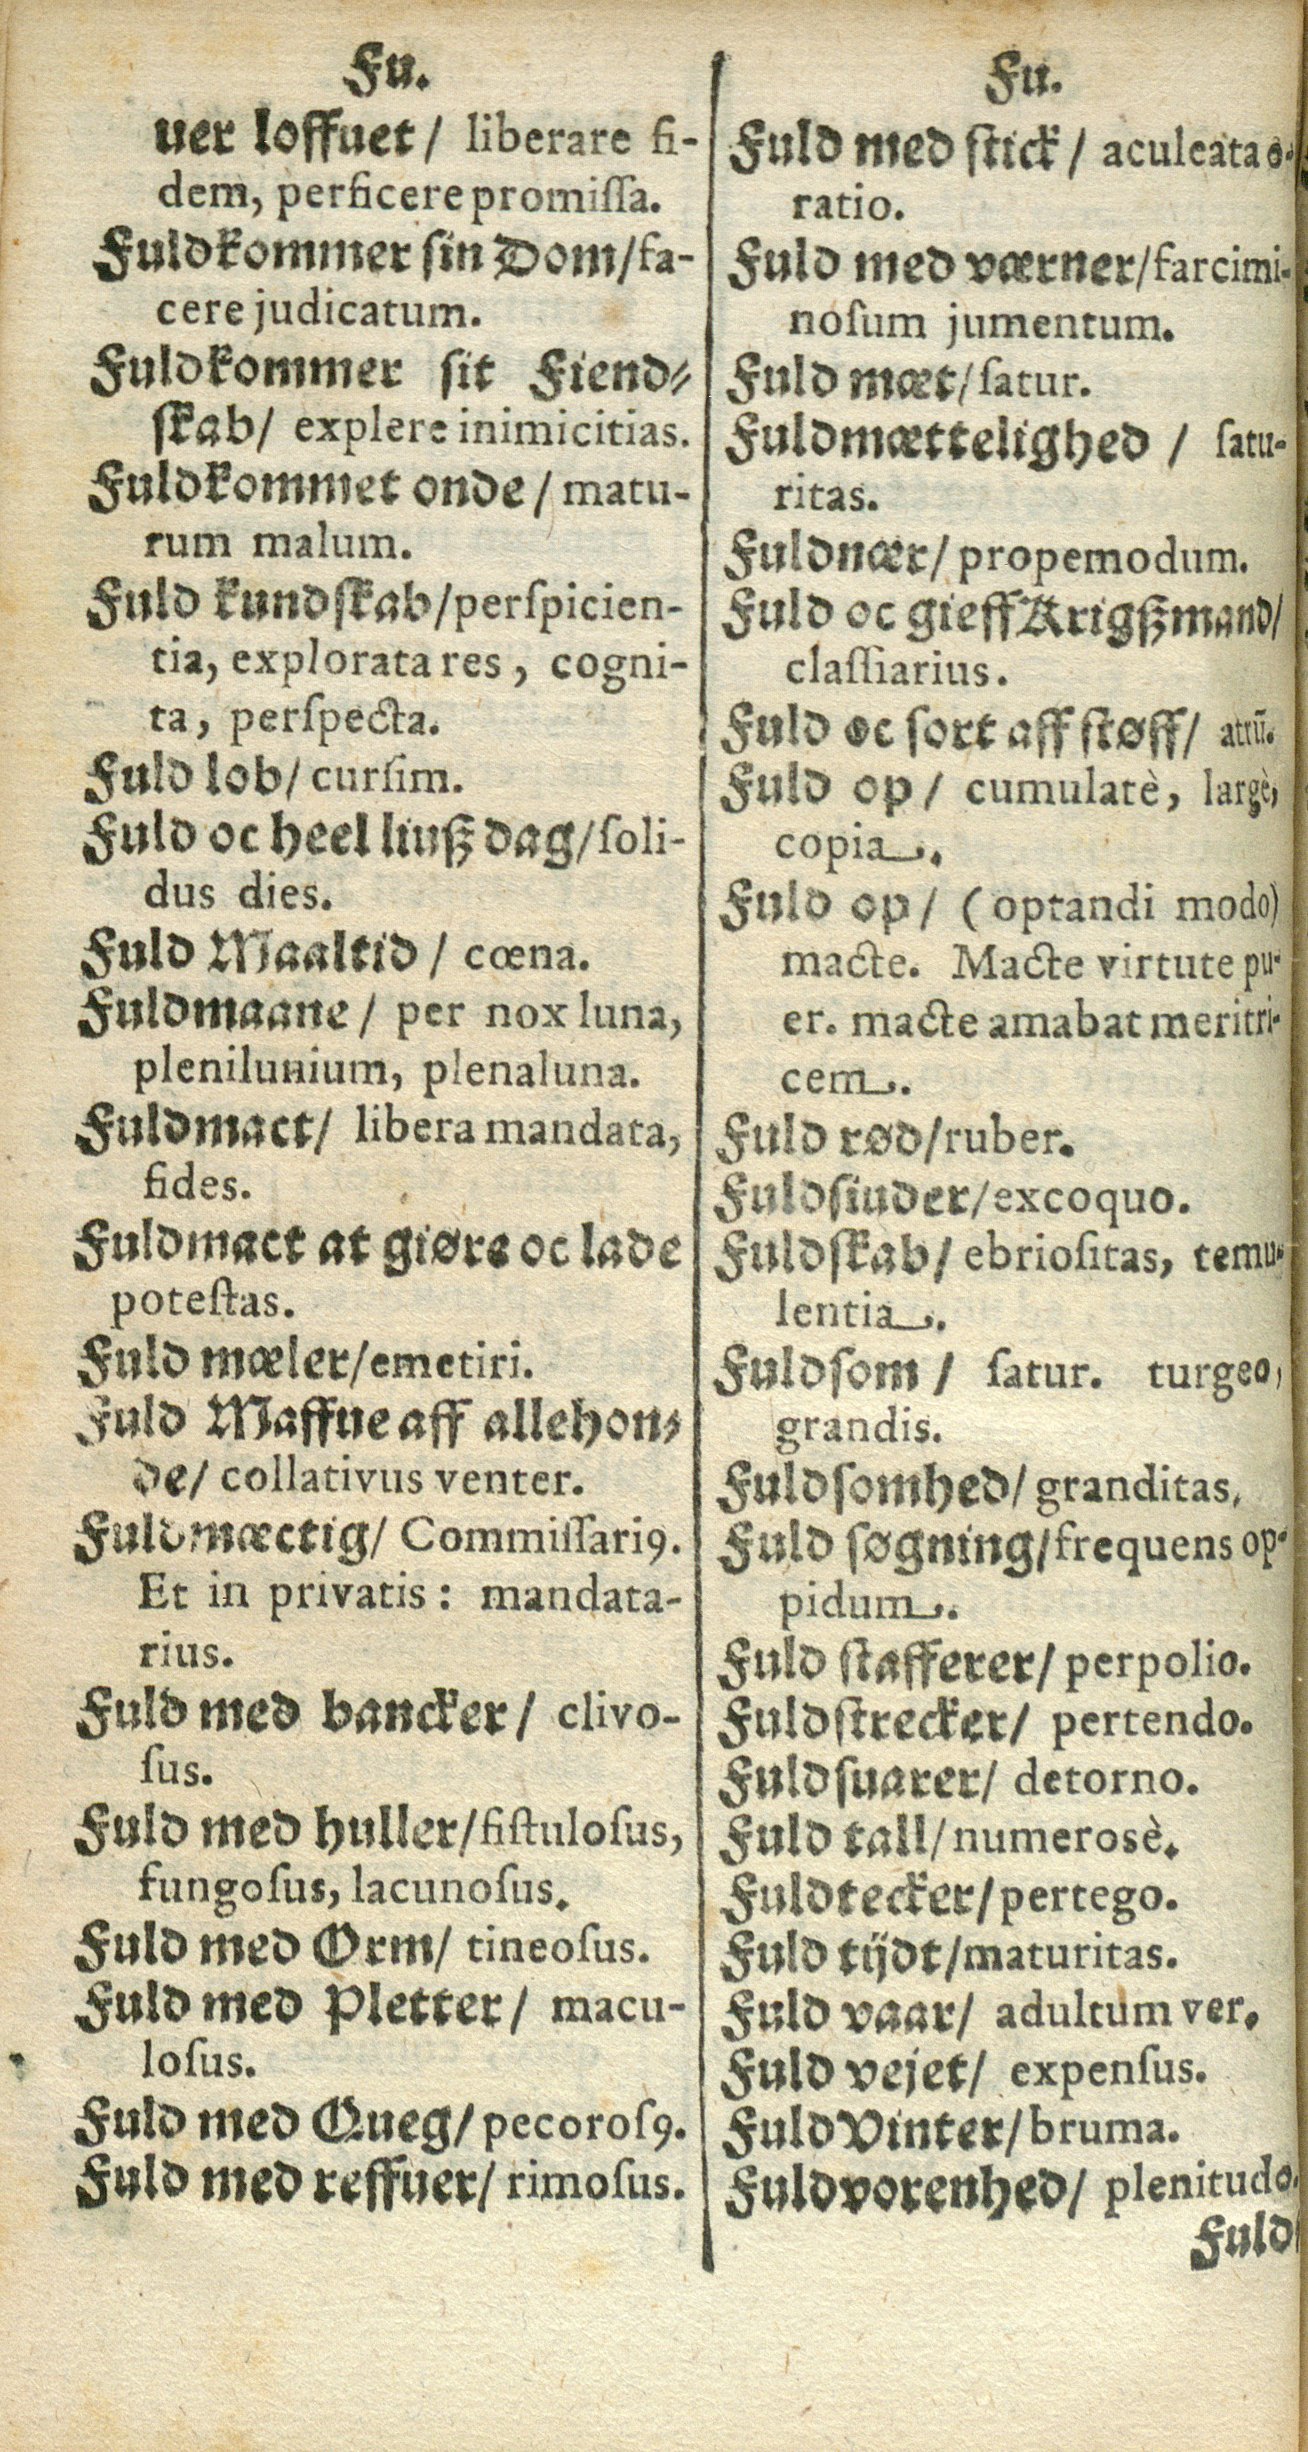 Fu.
uer loffuet/ liberare fi-
dem, perficere promiſſa.
Fuldkommer ſin Dom/fa-
cere judicatum.
Fuldkommer ſit Fiend⸗
ſkab/ explere inimicitias.
Fuldkommet onde/ matu-
rum malum.
Fuld kundſkab/perſpicien-
tia, explorata res, cogni-
ta, perſpecta.
Fuld lob/ curſim.
Fuld oc heel liuß dag/ſoli-
dus dies.
Fuld Maaltid/ cœna.
Fuldmaane/ per nox luna,
plenilunium, plenaluna.
Fuldmact/ libera mandata,
fides.
Fuldmact at giøre oc lade
poteſtas.
Fuld mæler/emetiri.
Fuld Maffue aff allehon⸗
de/ collativus venter.
Fuldmæctig/ Commiſſariꝰ.
Et in privatis: mandata-
rius.
Fuld med bancker/ clivo-
ſus.
Fuld med huller/fiſtuloſus,
fungoſus, lacunoſus.
Fuld med Orm/ tineoſus.
Fuld med Pletter/ macu-
loſus.
Fuld med Queg/pecoroſꝰ.
Fuld med reffuer/ rimoſus.
Fu.
Fuld med ſtick/ aculeata o-
ratio.
Fuld med værner/farcimi-
noſum jumentum.
Fuld mæt/ſatur.
Fuldmættelighed/ ſatu-
ritas.
Fuldnær/propemodum.
Fuld oc gieff Krigßmand/
claſſiarius.
Fuld oc ſort aff ſtøff/ atrū.
Fuld op/ cumulatè, largè,
copia.
Fuld op/ (optandi modo)
macte. Macte virtute pu-
er. macte amabat meritri-
cem.
Fuld rød/ruber.
Fuldſiuder/excoquo.
Fuldſkab/ ebrioſitas, temu-
lentia.
Fuldſom/ ſatur. turgeo,
grandis.
Fuldſomhed/granditas,
Fuld ſøgning/frequens op-
pidum.
Fuld ſtafferer/perpolio.
Fuldſtrecker/ pertendo.
Fuldſuarer/ detorno.
Fuld tall/numerosè.
Fuldtecker/pertego.
Fuld tijdt/maturitas.
Fuld vaar/ adultum ver.
Fuld vejet/ expenſus.
Fuld Vinter/bruma.
Fuldvorenhed/ plenitudo.
Fuld